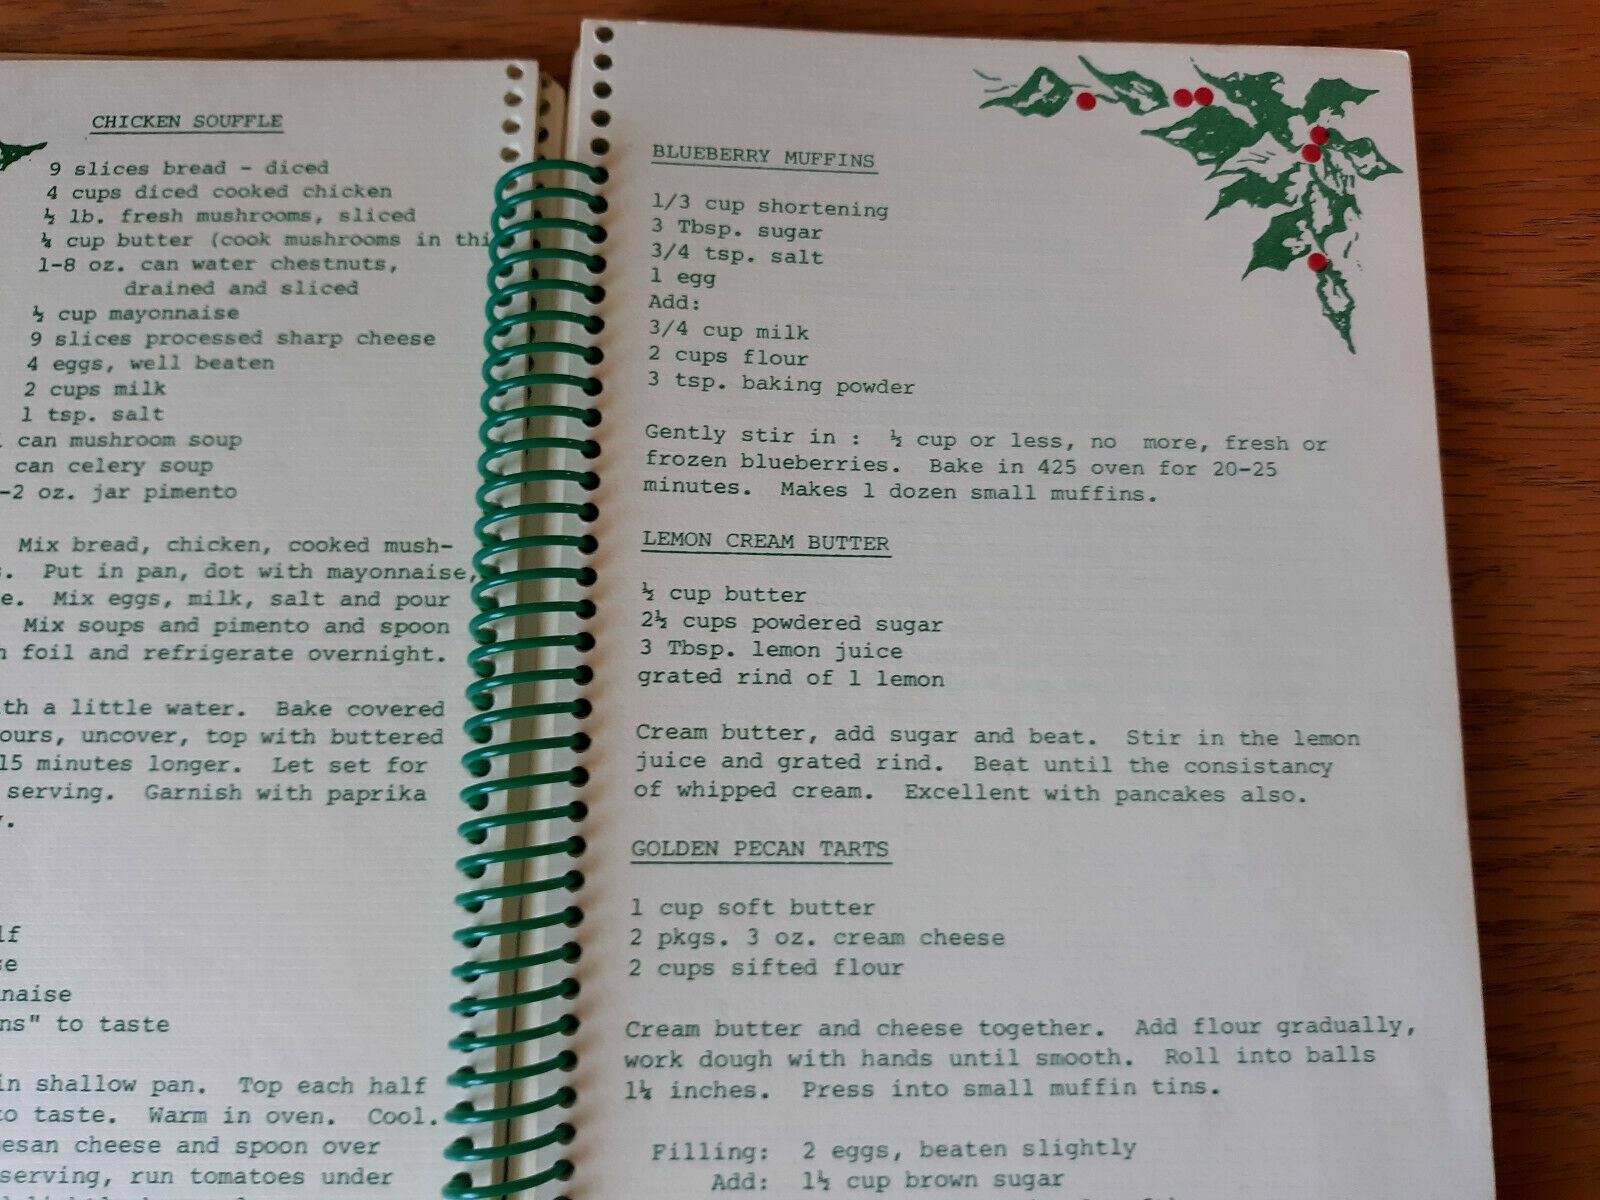 CHICKEN SOUFFLE
9 slices bread - diced
4 cups diced cooked chicken
½ lb. fresh mushrooms, sliced
¼ cup butter (cook mushrooms in thi
1-8 oz. can water chestnuts,
drained and sliced
½ cup mayonnaise
9 slices processed sharp cheese
4 eggs, well beaten
2 cups milk
1 tsp. salt
can mushroom soup
can celery soup
-2 oz. jar pimento
Mix bread, chicken, cooked mush-
. Put in pan, dot with mayonnaise,
e. Mix eggs, milk, salt and pour
Mix soups and pimento and spoon
foil and refrigerate overnight.
th a little water. Bake covered
ours, uncover, top with buttered
15 minutes longer. Let set for
serving. Garnish with paprika
lf
se
naise
ns" to taste
in shallow pan. Top each half
to taste. Warm in oven. Cool.
esan cheese and spoon over
serving, run tomatoes under
BLUEBERRY MUFFINS
1/3 cup shortening
3 Tbsp. sugar
3/4 tsp. salt
1 egg
Add:
3/4 cup milk
2 cups flour
3 tsp. baking powder
Gently stir in : ½ cup or less, no more, fresh or
frozen blueberries. Bake in 425 oven for 20-25
minutes. Makes 1 dozen small muffins.
LEMON CREAM BUTTER
½ cup butter
2½ cups powdered sugar
3 Tbsp. lemon juice
grated rind of 1 lemon
Cream butter, add sugar and beat. Stir in the lemon
juice and grated rind. Beat until the consistancy
of whipped cream. Excellent with pancakes also.
GOLDEN PECAN TARTS
1 cup soft butter
2 pkgs. 3 oz. cream cheese
2 cups sifted flour
Cream butter and cheese together. Add flour gradually,
work dough with hands until smooth. Roll into balls
1¼ inches. Press into small muffin tins.
Filling: 2 eggs, beaten slightly
Add: 1½ cup brown sugar